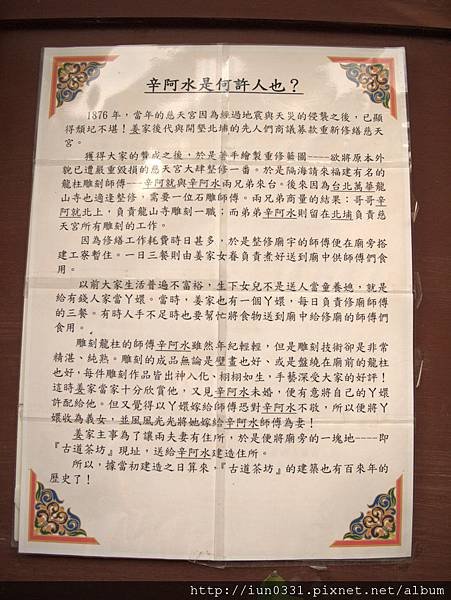 辛阿水是何許人也？
1876年，當年的慈天宮因為經過地震與天災的侵襲之後，已顯
得頹圮不堪！姜家後代與開墾北埔的先人們商議募款重新修繕慈天
宮。
獲得大家的贊成之後，於是著手繪製重修藍圖----欲將原本外
貌已遭嚴重毀損的慈天宮大肆整修一番。於是隔海請來福建有名的
龍柱雕刻師傅---辛阿就與辛阿水兩兄弟來台。後來因為台北萬華龍
山寺也適逢整修，需要一位石雕師傅。兩兄弟商量的結果：哥哥辛
阿就北上，負責龍山寺雕刻一職；而弟弟辛阿水則留在北埔負責慈
天宮所有雕刻的工作。
因為修繕工作耗費時日甚多，於是整修廟宇的師傅便在廟旁搭
建工寮暫住。一日三餐則由姜家女眷負責煮好送到廟中供師傅們食
用。
以前大家生活普遍不富裕，生下女兒不是送人當童養媳，就是
給有錢人家當丫嬛。當時，姜家也有一個丫嬛，每日負責修廟師傅
的三餐。有時人手不足時也要幫忙將食物送到廟中給修廟的師傅們
食用。
雕刻龍柱的師傅辛阿水雖然年紀輕輕，但是雕刻技術卻是非常
精湛、純熟。雕刻的成品無論是壁畫也好、或是盤繞在廟前的龍柱
也好，每件雕刻作品皆出神入化、栩栩如生，手藝深受大家的好評！
這時姜家當家十分欣賞他，又見辛阿水未婚，便有意將自己的丫嬛
許配給他。但又覺得以丫嬛嫁給師傅恐對辛阿水不敬，所以便將丫
嬛收為義女，並風風光光將她嫁給辛阿水師傅為妻！
姜家主事為了讓兩夫妻有住所，於是便將廟旁的一塊地----即
『古道茶坊』現址，送給辛阿水建造住所。
所以，據當初建造之日算來，『古道茶坊』的建築也有百來年的
歷史了！
http://iun0331.pixnet.net/album